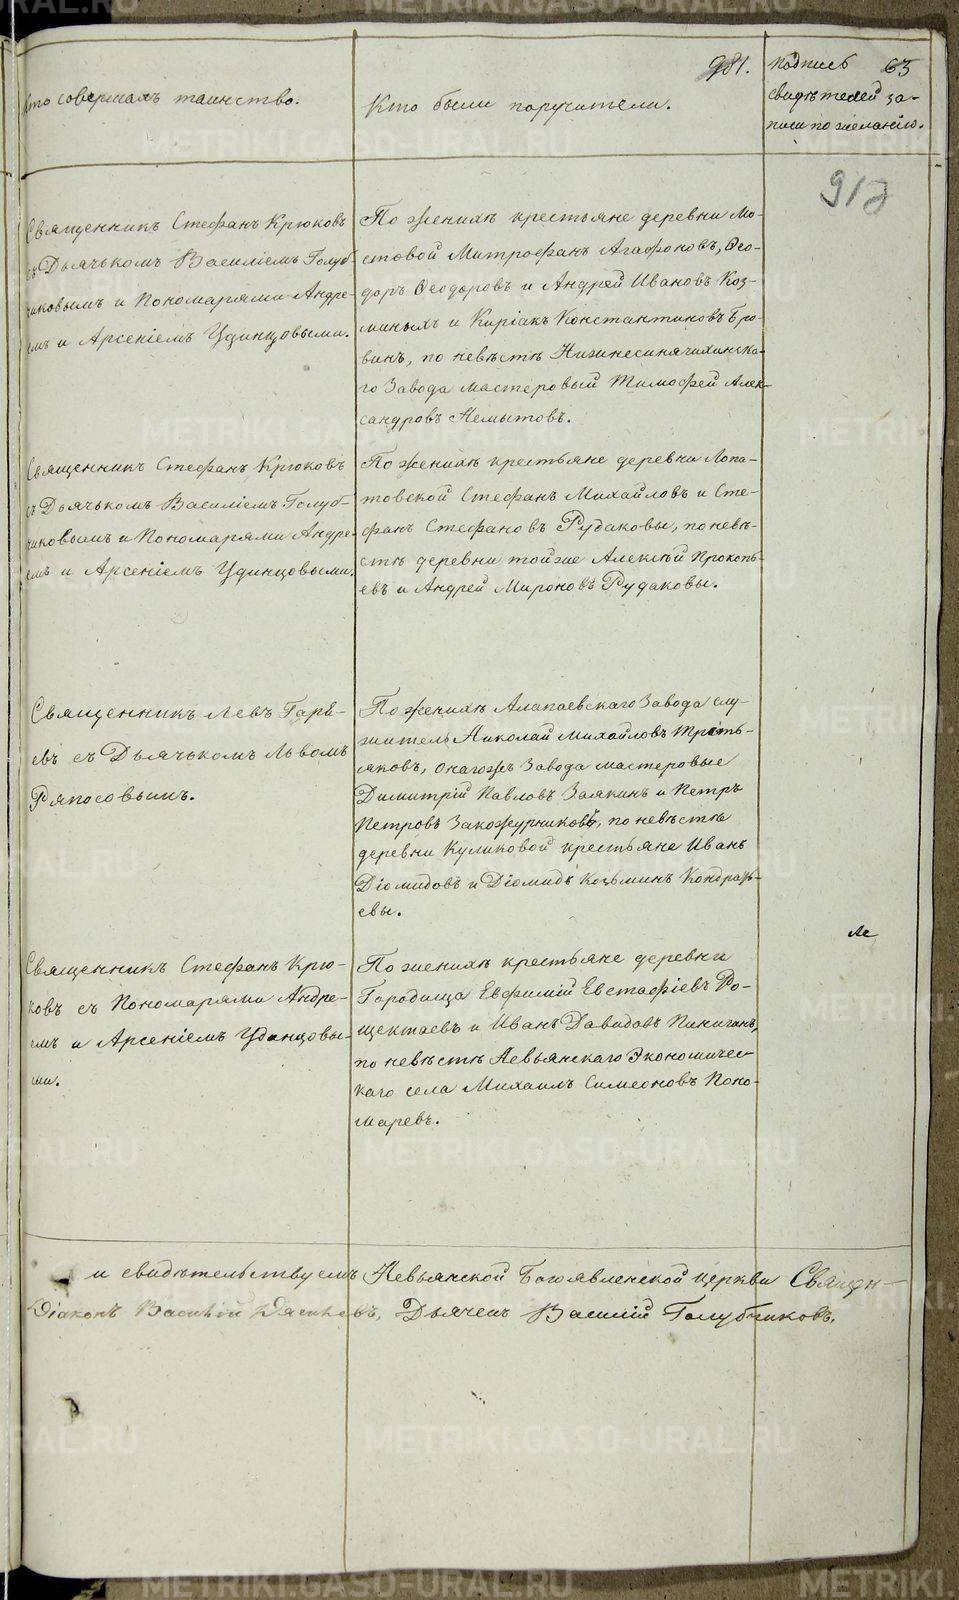 981.
63
Кто совершалъ таинство.
Кто были поручители.
Подпись
свидѣтелей за-
писи по желанію.
912
Священникъ Стефанъ Крюковъ
съ Дьячькомъ Василіемъ Голуб-
чиковымъ и Пономарями Андре-
емъ и Арсеніемъ Удинцовыми.
По женихѣ крестьяне деревни Мо-
стовой Митрофанъ Агафоновъ, Ѳео-
доръ Ѳеодоровъ и Андрей Ивановъ Коз-
миныхъ и Киріакъ Константиновъ Бро-
винъ, по невѣстѣ Нижнесинячихинска-
го Завода мастеровый Тимофей Алек-
сандровъ Немытовъ.
Священникъ Стефанъ Крюковъ
съ Дьячькомъ Василіемъ Голуб-
чиковымъ и Пономарями Андре-
емъ и Арсеніемъ Удинцовыми.
По женихѣ крестьяне деревни Лопа-
товской Стефанъ Михайловъ и Сте-
фанъ Стефановъ Рудаковы, по невѣ-
стѣ деревни тойже Алексѣй Прокопь-
евъ и Андрей Мироновъ Рудаковы.
Священникъ Левъ Гарѣ-
евъ съ Дьячькомъ Львомъ
Ряпосовымъ.
По женихѣ Алапаевскаго Завода слу-
житель Николай Михайловъ Треть-
яковъ, онагожъ Завода мастеровые
Димитрій Павловъ Заякинъ и Петръ
Петровъ Закожурниковъ, по невѣстѣ
деревни Куликовой крестьяне Иванъ
Діомидовъ и Діомидъ Козьминъ Кондрать-
евы.
Священникъ Стефанъ Крю-
ковъ съ Пономарями Андре-
емъ и Арсеніемъ Удинцовы-
ми.
По женихѣ крестьяне деревни
Городища Евфимій Евстафіевъ Ро-
щектаевъ и Иванъ Давидовъ Пинигинъ,
по невѣстѣ Невьянскаго Экономичес-
каго села Михаилъ Симеоновъ Поно-
маревъ.
и свидѣтельствуемъ Невьянской Богоявленской церкви Священ-
Діаконъ Василій Дягилевъ, Дьячекъ Василій Голубчиковъ.
METRIKI.GASO-URAL.RU